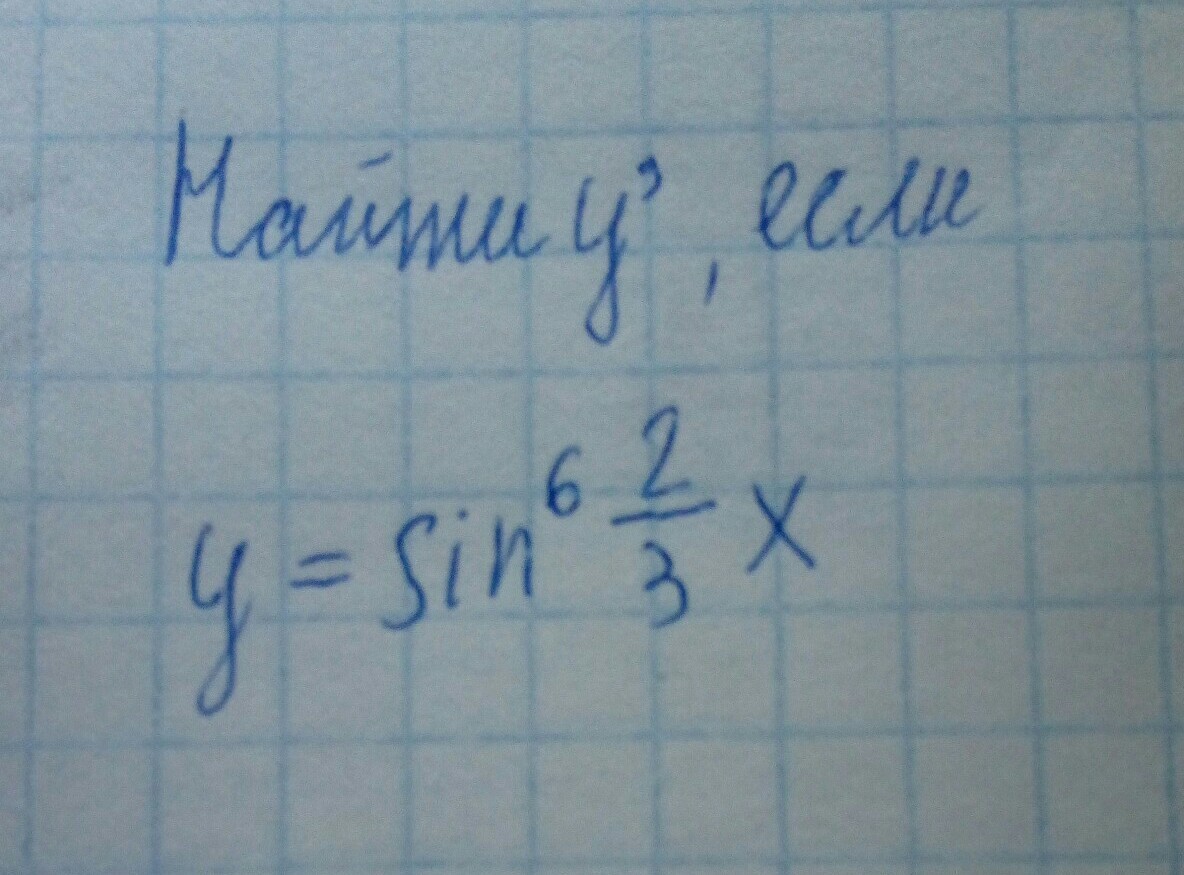 Найти y', если
y = sin⁶ 2/3 x